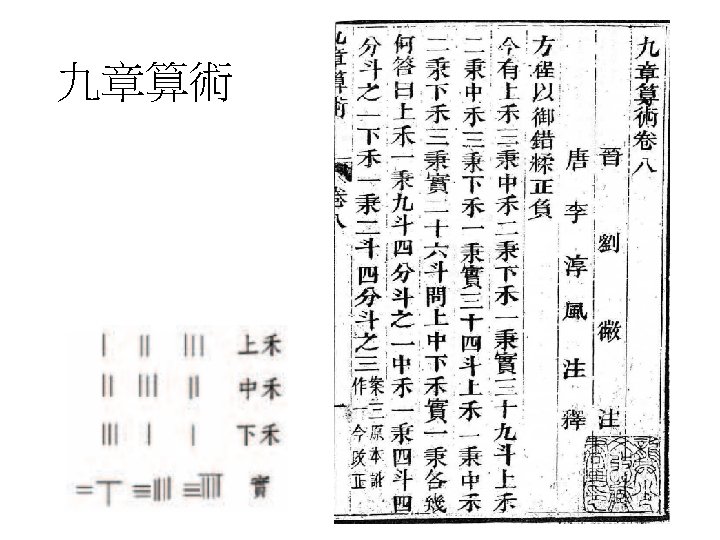 九章算術
九章算術卷八
晉 劉 徽 注
唐 李 淳 風 注 釋
方程以御錯糅正負
今有上禾三秉中禾二秉下禾一秉實三十九斗上禾
二秉中禾三秉下禾一秉實三十四斗上禾一秉中禾
二秉下禾三秉實二十六斗問上中下禾實一秉各幾
何答曰上禾一秉九斗四分斗之一中禾一秉四斗四
分斗之一下禾一秉二斗四分斗之三
案三原本訛
作一今改正
九章算術 卷八 一
||| || | 上禾
|| ||| || 中禾
| | ||| 下禾
實